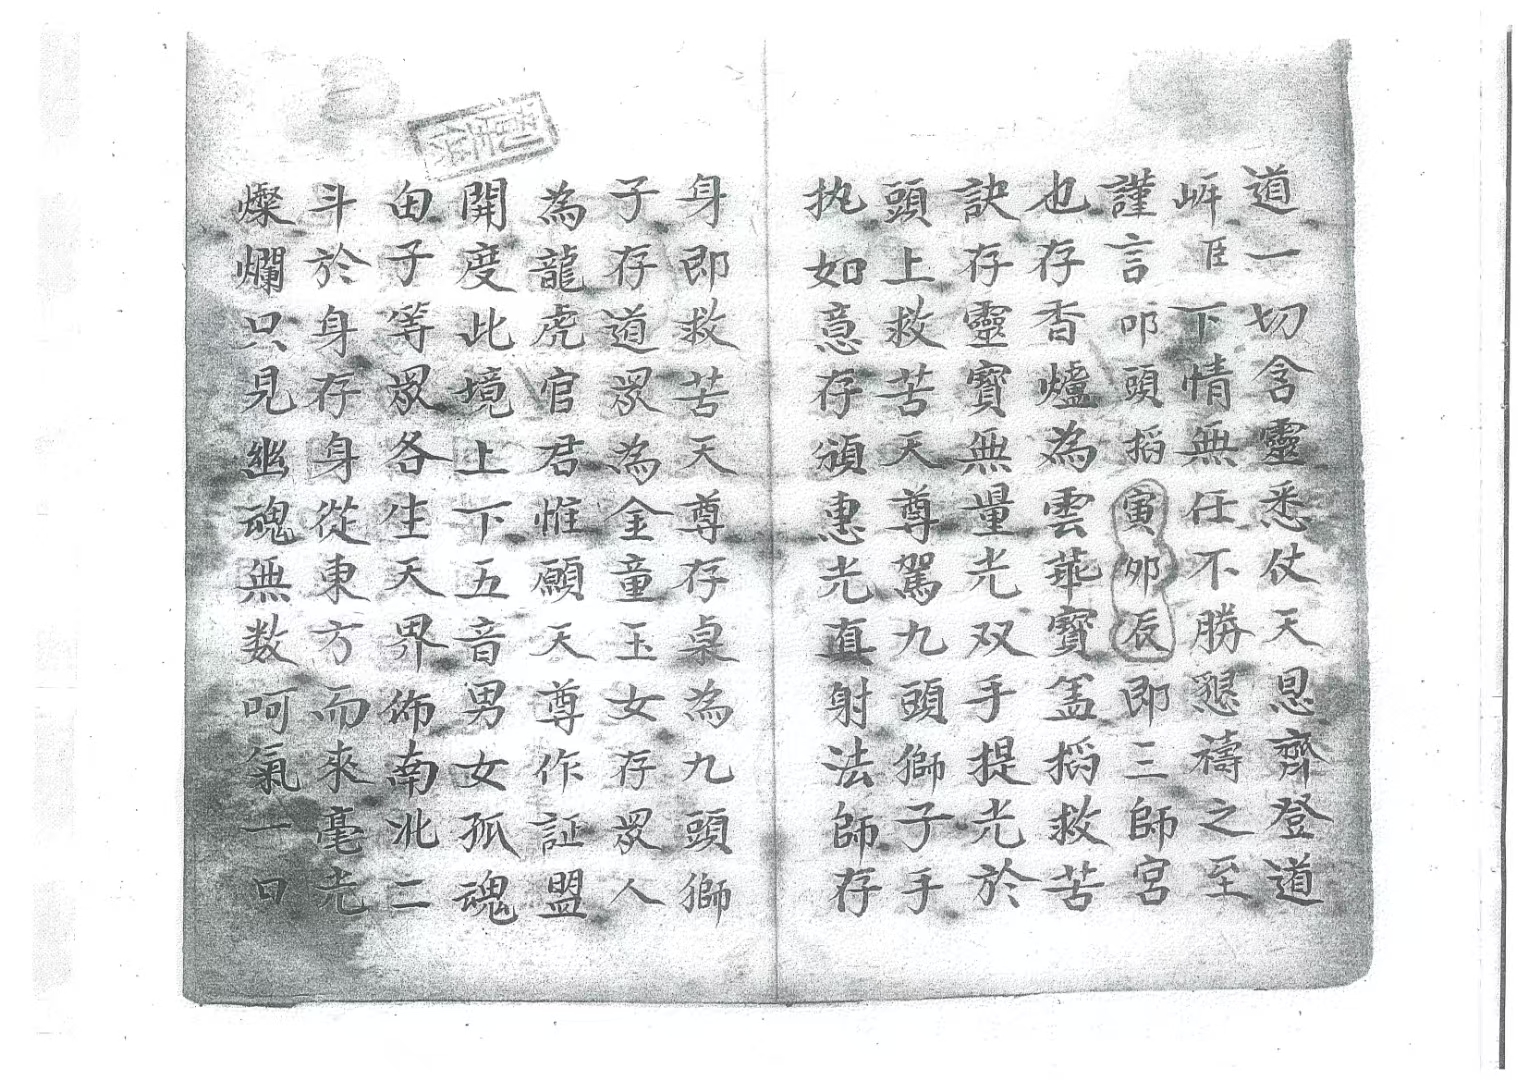 道一切含靈悉仗天恩齊登道
岸臣下情無任不勝懇禱之至
謹言叩頭搯寅夘辰即三師宮
也存香爐為雲乖寶盖搯救苦
訣存靈寶無量光双手提光於
頭上救苦天尊駕九頭獅子手
执如意存頒惠光直射法師存
身即救苦天尊存桌為九頭獅
子存道眾為金童玉女存眾人
為龍虎官君惟願天尊作証盟
開度此境上下五音男女孤魂
甶子等眾各生天界佈南北二
斗於身存身從東方而來毫光
燦爛只見幽魂無数呵氣一口